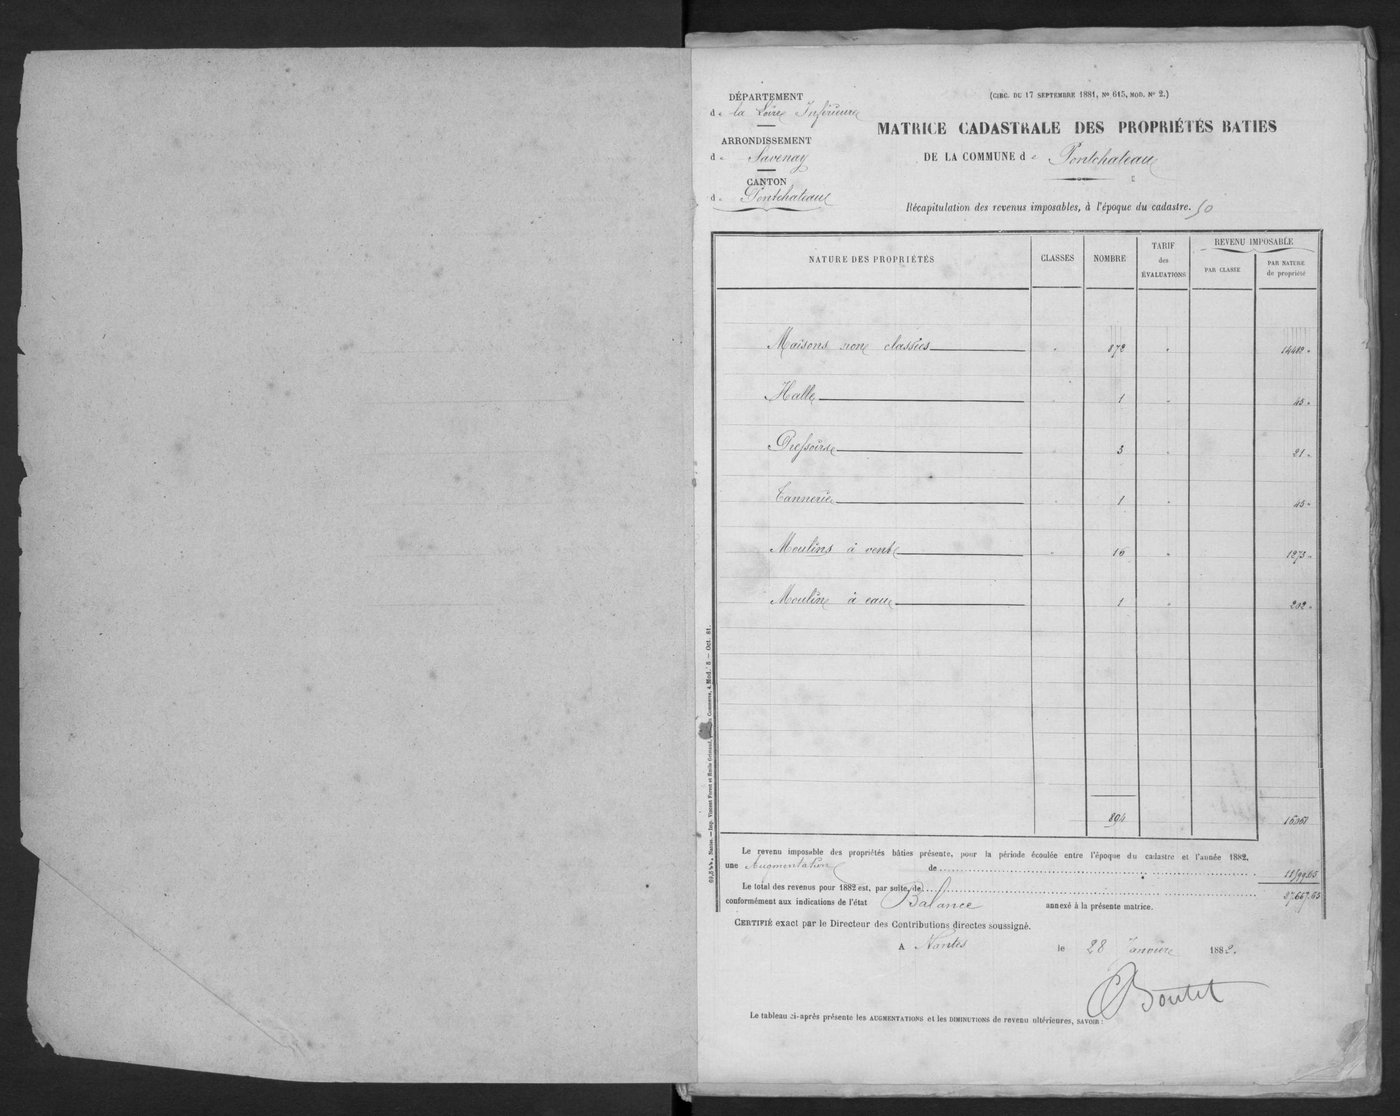 DÉPARTEMENT
de la Loire Inférieure
ARRONDISSEMENT
de Savenay
CANTON
de Pontchateau
(CIRC. DU 17 SEPTEMBRE 1881, No 615, MOD. No 2.)
MATRICE CADASTRALE DES PROPRIÉTÉS BATIES
DE LA COMMUNE de Pontchateau
Récapitulation des revenus imposables, à l'époque du cadastre.
NATURE DES PROPRIÉTÉS CLASSES NOMBRE TARIF des ÉVALUATIONS REVENU IMPOSABLE
PAR CLASSE PAR NATURE de propriété
Maisons non classées 872 14482
Halle 1 45
Pressoirs 3 21
Tannerie 1 45
Moulins à vent 16 1273
Moulin à eau 1 202
894
Le revenu imposable des propriétés bâties présente, pour la période écoulée entre l'époque du cadastre et l'année 1882,
une Augmentation de 11599.63
Le total des revenus pour 1882 est, par suite, de 27.667.63
conformément aux indications de l'état Balance annexé à la présente matrice.
CERTIFIÉ exact par le Directeur des Contributions directes soussigné.
A Nantes le 28 Janvier 1882.
Boutet
Le tableau ci-après présente les AUGMENTATIONS et les DIMINUTIONS de revenu ultérieures, SAVOIR :